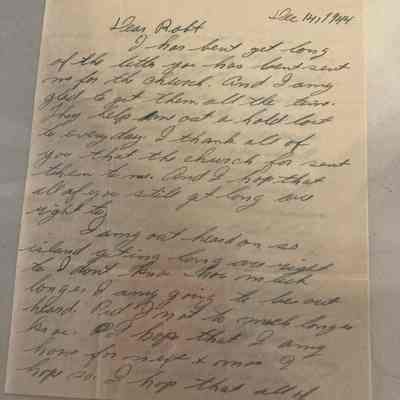 Dec 14, 1944
Dear Robt
I has bent get long
of the letto you has bent sent
me for the church. And I amy
glad to get them all the time.
They help out a hold lost
to everyday. I thank all of
you that the church for sent
them to me. And I hop that
all of you still get long are
right to
I amy out heard on so
island geting long are right
to I dont know how much
longer I amy going to be out
heard. But I not to much longer
I hop that I amy
home for next x mas I
hope so. I hop that all of